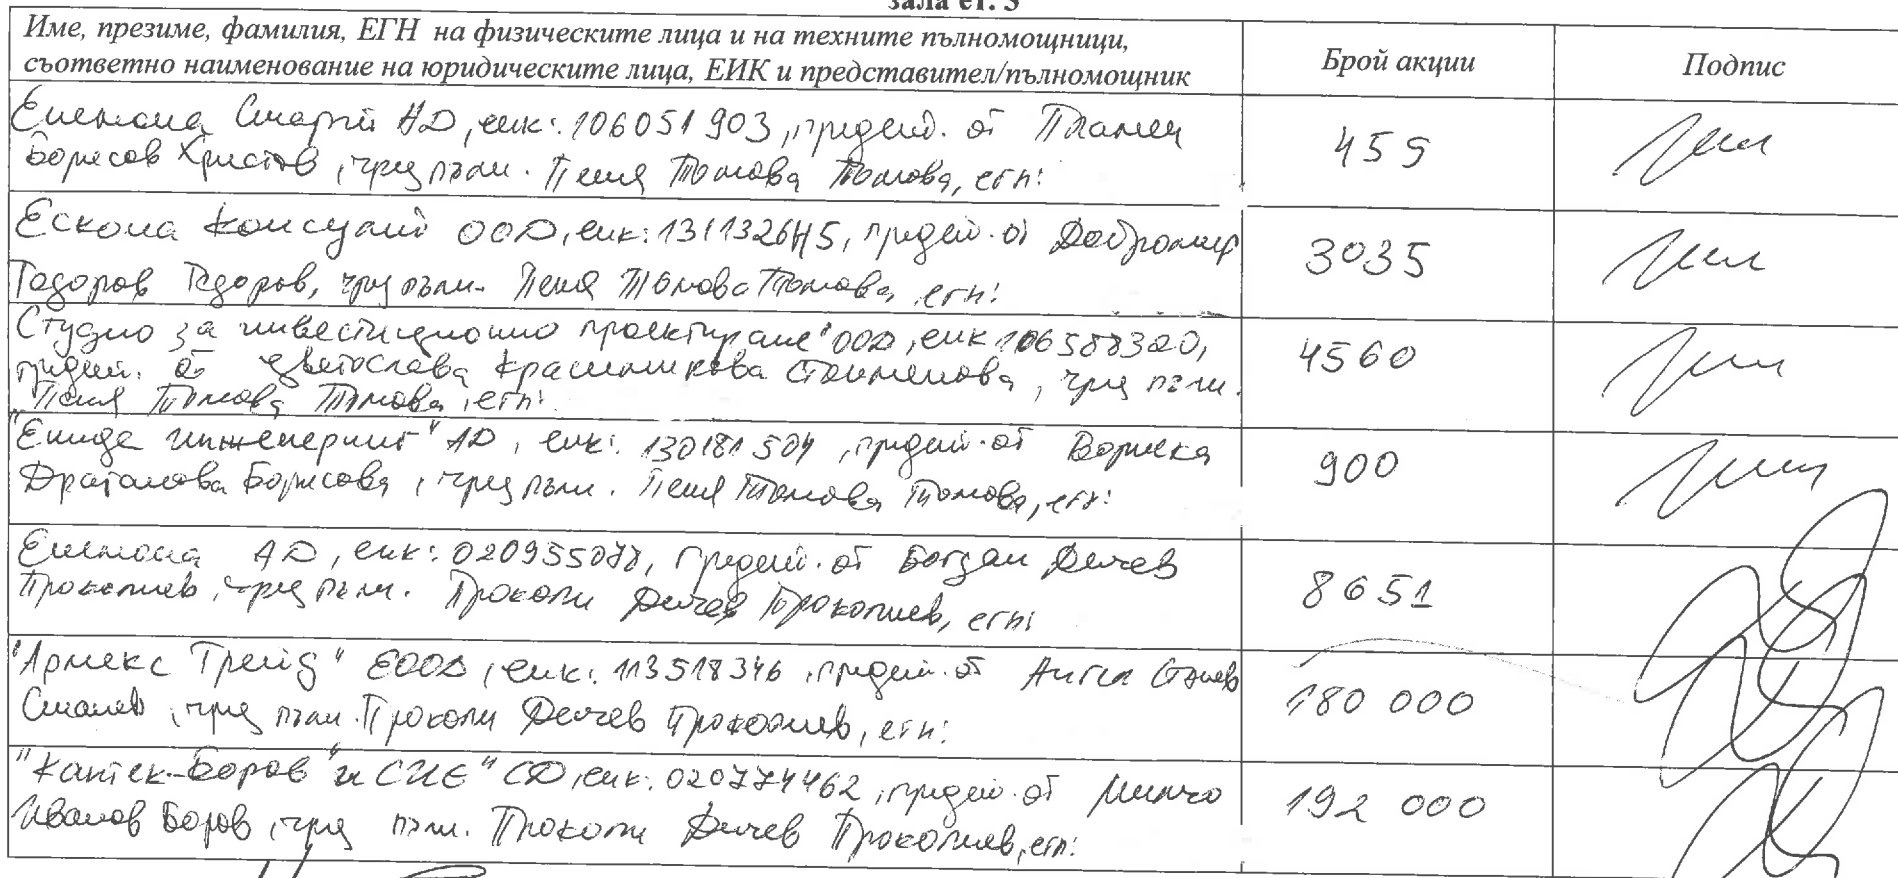 зала ет. 3
Име, презиме, фамилия, ЕГН на физическите лица и на техните пълномощници,
съответно наименование на юридическите лица, ЕИК и представител/пълномощник
Брой акции
Подпис
Енемона Старт АД, еик: 106051903, предст. от Пламен
Борисов Христов, чрез пълн. Пеня Томова Томова, егн:
459
Ескона Консулт ООД, еик: 131132645, предст. от Добромир
Тодоров Тодоров, чрез пълн. Пеня Томова Томова, егн:
3035
Студио за инвестиционно проектиране" ООД, еик 106588320,
предст. от Цветослава Красимирова Стоименова, чрез пълн.
Пеня Томова Томова, егн:
4560
инженеринг" АД, еик: 130181504, предст. от
Борисова, чрез пълн. Пеня Томова Томова, егн:
900
Енемона АД, еик: 020955078, предст. от Богдан Дечев
Прокопиев, чрез пълн. Прокопи Дечев Прокопиев, егн:
8651
"Армекс Трейд" ЕООД, еик: 113518346, предст. от Ангел
чрез пълн. Прокопи Дечев Прокопиев, егн:
180 000
"Кантек-Боров" и СИЕ" СД, еик: 020774462, предст. от Минчо
Иванов Боров, чрез пълн. Прокопи Дечев Прокопиев, егн:
192 000